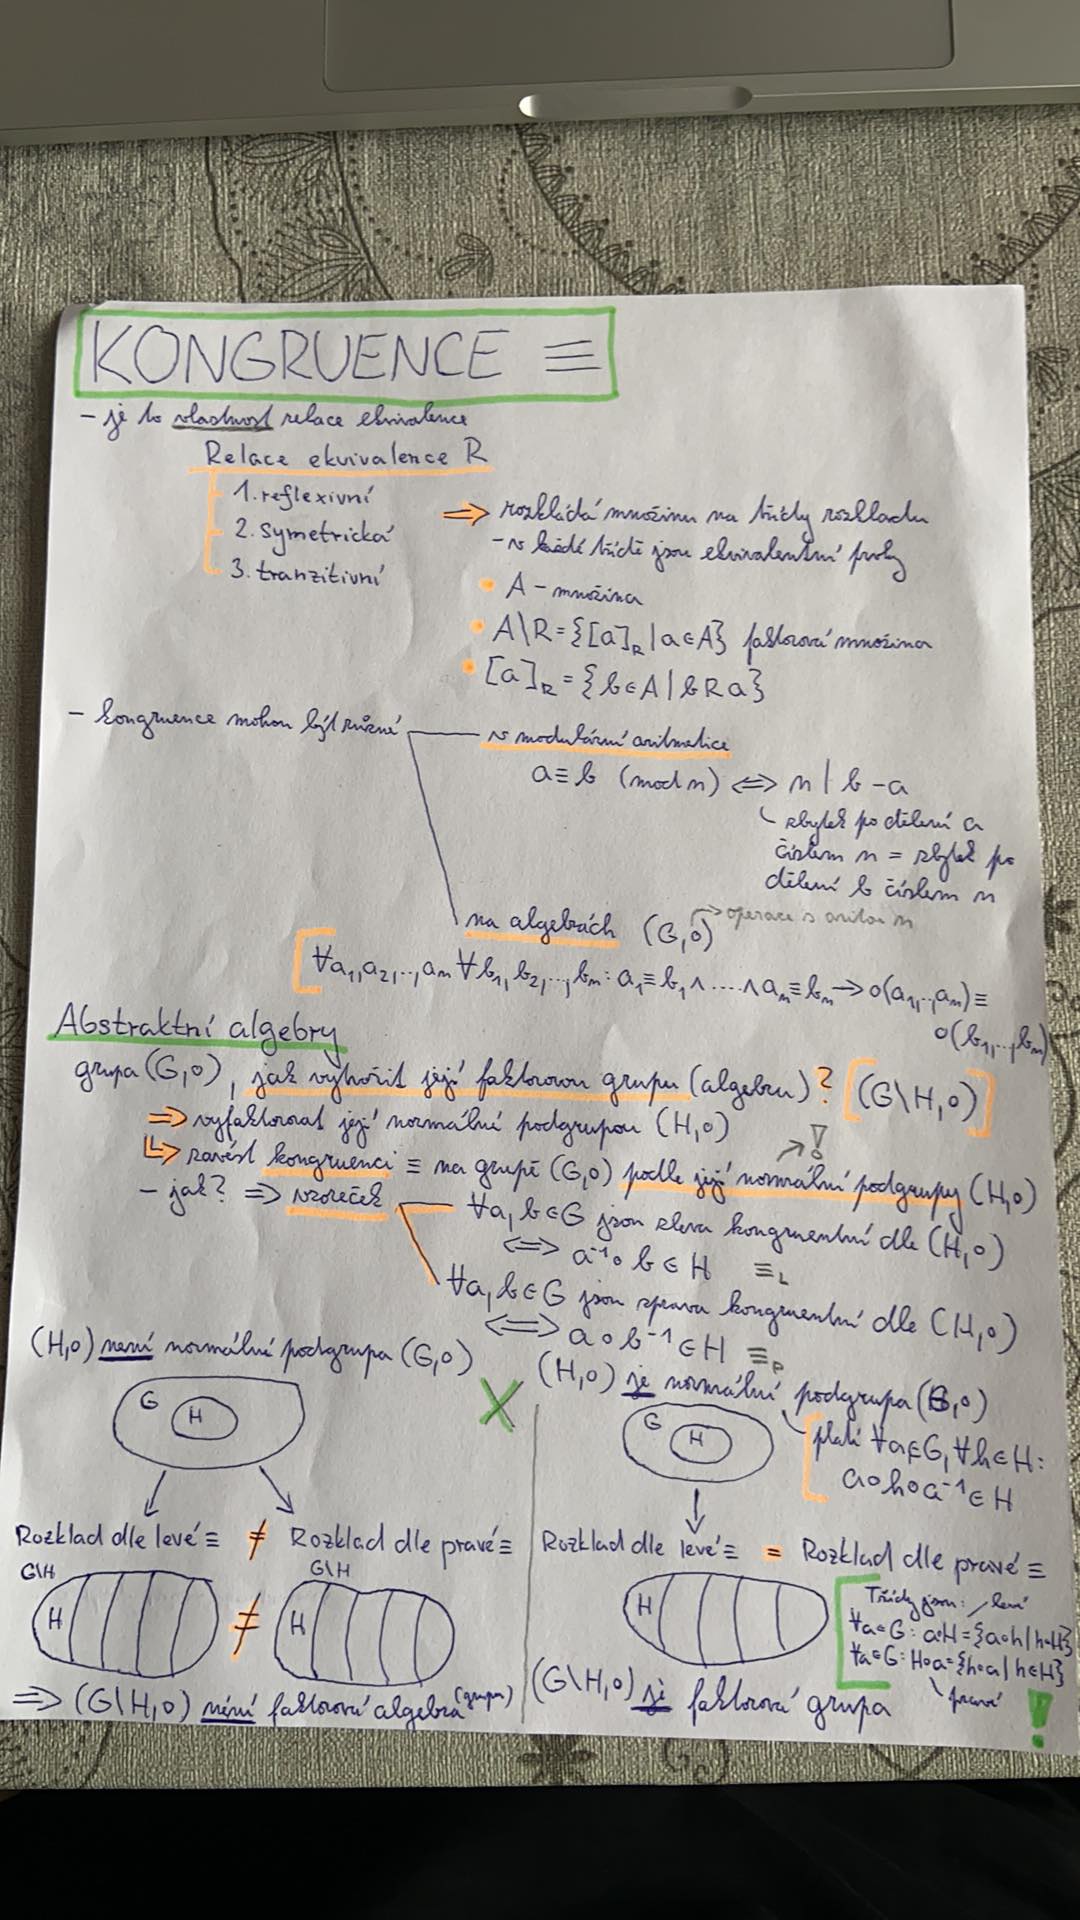 KONGRUENCE ≡
- je to vlastnost relace ekvivalence
Relace ekvivalence R
1. reflexivní
2. symetrická
3. tranzitivní
⇒ rozkládá množinu na třídy rozkladu
- v každé třídě jsou ekvivalentní prvky
• A - množina
• A\R = {[a]_R | a ∈ A} faktorová množina
• [a]_R = {b ∈ A | b R a}
- kongruence mohou být různé
v modulární aritmetice
a ≡ b (mod n) ⇔ n | b - a
zbytek po dělení a
číslem n = zbytek po
dělení b číslem n
na algebrách (G,o) → operace s aritou n
∀a₁,a₂,..,aₙ ∀b₁,b₂,..,bₙ: a₁≡b₁ ∧ .... ∧ aₙ≡bₙ → o(a₁,..,aₙ) ≡
o(b₁,..,bₙ)
Abstraktní algebry
grupa (G,o), jak vytvořit její faktorovou grupu (algebru)? [(G\H,o)]
⇒ vyfaktorovat její normální podgrupou (H,o)
↳ zavést kongruenci ≡ na grupě (G,o) podle její normální podgrupy (H,o) !
- jak? ⇒ vzoreček
∀a,b∈G jsou zleva kongruentní dle (H,o)
⇔ a⁻¹ o b ∈ H ≡_L
∀a,b∈G jsou zprava kongruentní dle (H,o)
⇔ a o b⁻¹ ∈ H ≡_P
(H,o) není normální podgrupa (G,o)
G H
Rozklad dle levé ≡ ≠ Rozklad dle pravé ≡
G\H G\H
H ≠ H
⇒ (G\H,o) není faktorová algebra (grupa)
X
(H,o) je normální podgrupa (G,o)
G H
platí ∀a∈G, ∀h∈H:
a o h o a⁻¹ ∈ H
Rozklad dle levé ≡ = Rozklad dle pravé ≡
H
Třídy jsou: levé
∀a∈G: a o H = {a o h | h∈H}
∀a∈G: H o a = {h o a | h∈H}
pravé
(G\H,o) je faktorová grupa !